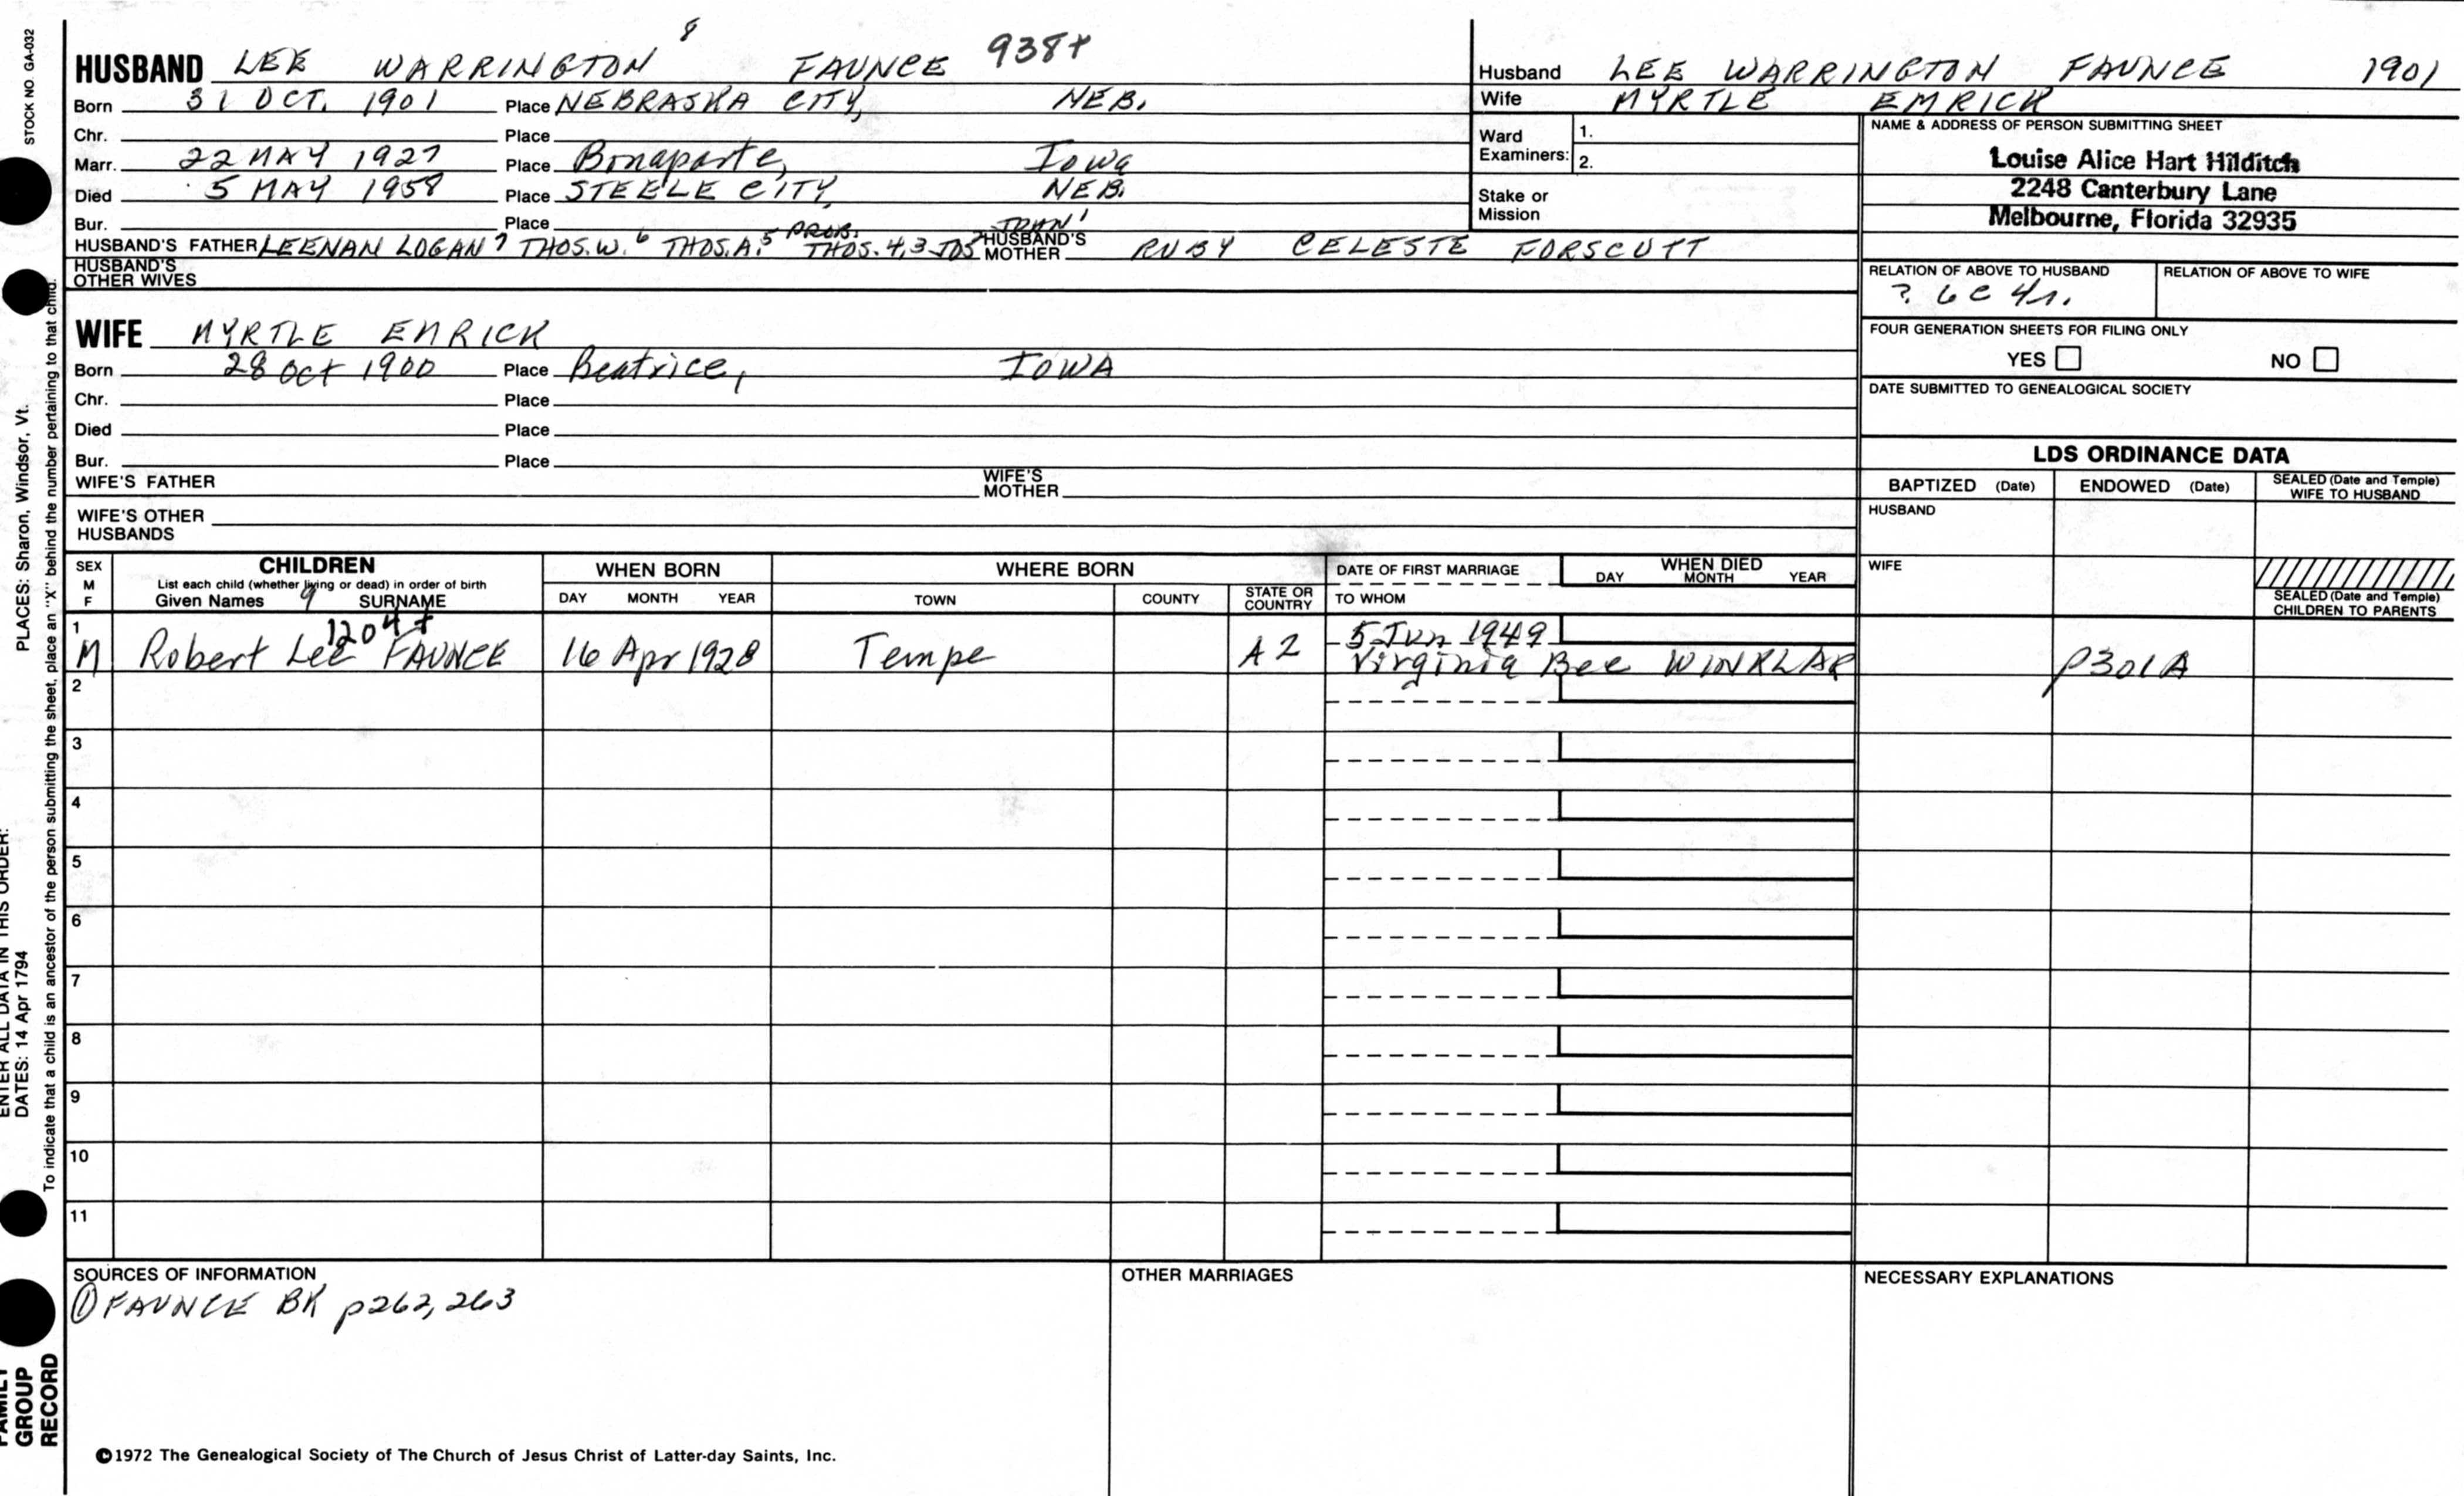 STOCK NO. GA-032
8
HUSBAND LEE WARRINGTON FAUNCE 938+
Born 31 OCT. 1901 Place NEBRASKA CITY, NEB.
Chr. Place
Marr. 22 MAY 1927 Place Bonaparte, Iowa
Died 5 MAY 1958 Place STEELE CITY, NEB.
Bur. Place
PROB. JOHN1
HUSBAND'S FATHER LEENAN LOGAN7 THOS.W.6 THOS.A.5 THOS.4,3 JOS2 HUSBAND'S MOTHER RUBY CELESTE FORSCUTT
HUSBAND'S
OTHER WIVES
WIFE MYRTLE EMRICK
Born 28 Oct 1900 Place Beatrice, IOWA
Chr. Place
Died Place
Bur. Place
WIFE'S FATHER WIFE'S MOTHER
WIFE'S OTHER
HUSBANDS
Husband LEE WARRINGTON FAUNCE 1901
Wife MYRTLE EMRICK
Ward Examiners: 1.
2.
Stake or
Mission
NAME & ADDRESS OF PERSON SUBMITTING SHEET
Louise Alice Hart Hilditch
2248 Canterbury Lane
Melbourne, Florida 32935
RELATION OF ABOVE TO HUSBAND RELATION OF ABOVE TO WIFE
? 6C 4r.
FOUR GENERATION SHEETS FOR FILING ONLY
YES NO
DATE SUBMITTED TO GENEALOGICAL SOCIETY
LDS ORDINANCE DATA
BAPTIZED (Date) ENDOWED (Date) SEALED (Date and Temple) WIFE TO HUSBAND
HUSBAND
WIFE
SEALED (Date and Temple)
CHILDREN TO PARENTS
SEX M F CHILDREN WHEN BORN WHERE BORN DATE OF FIRST MARRIAGE WHEN DIED
List each child (whether living or dead) in order of birth
Given Names 9 SURNAME DAY MONTH YEAR TOWN COUNTY STATE OR COUNTRY TO WHOM DAY MONTH YEAR
1 1204+ 5 Jun 1949
M Robert Lee FAUNCE 16 Apr 1928 Tempe AZ Virginia Bee WINKLAR P301A
2
3
4
5
6
7
8
9
10
11
SOURCES OF INFORMATION OTHER MARRIAGES NECESSARY EXPLANATIONS
① FAUNCE BK p262, 263
©1972 The Genealogical Society of The Church of Jesus Christ of Latter-day Saints, Inc.
ENTER ALL DATA IN THIS ORDER:
DATES: 14 Apr 1794
PLACES: Sharon, Windsor, Vt.
To indicate that a child is an ancestor of the person submitting the sheet, place an "X" behind the number pertaining to that child.
FAMILY
GROUP
RECORD